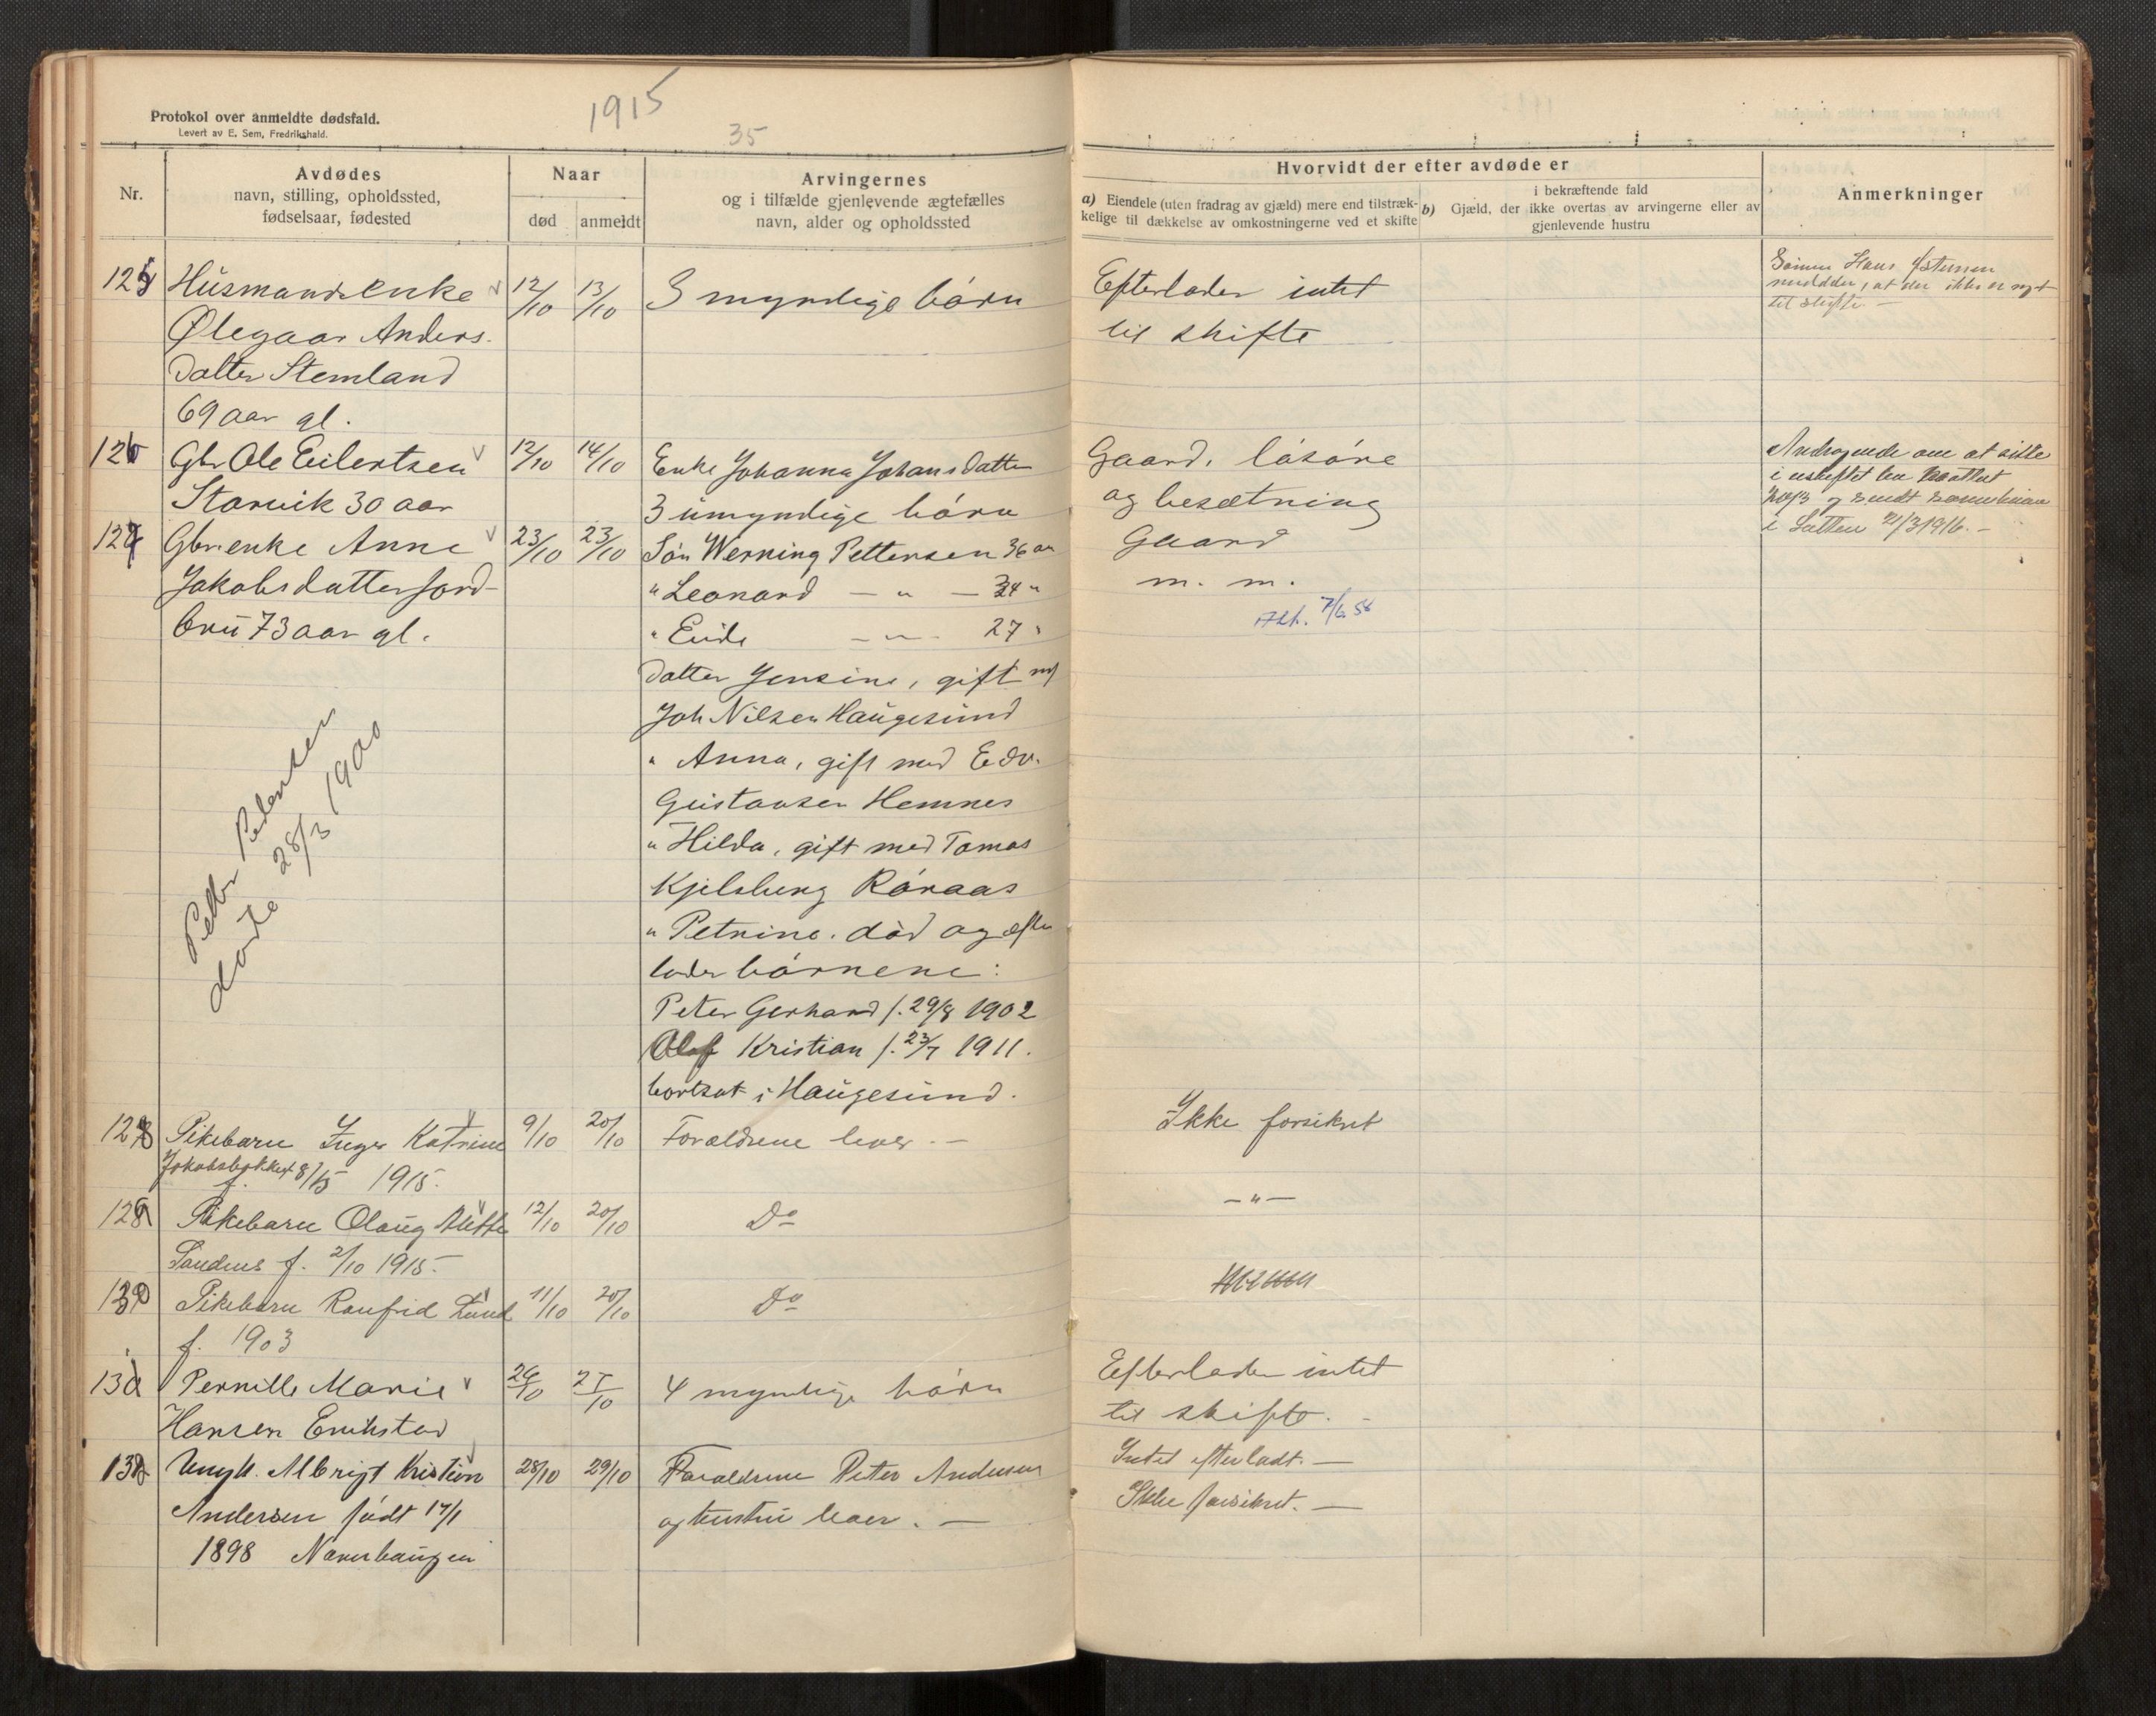 Protokol over anmeldte dødsfald.
Levert av E. Sem, Fredrikshald.
1915
35
Nr.
Avdødes
navn, stilling, opholdssted,
fødselsaar, fødested
Naar
død
anmeldt
Arvingernes
og i tilfælde gjenlevende ægtefælles
navn, alder og opholdssted
Hvorvidt der efter avdøde er
a) Eiendele (uten fradrag av gjæld) mere end tilstræk-
kelige til dækkelse av omkostningerne ved et skifte
i bekræftende fald
b) Gjæld, der ikke overtas av arvingerne eller av
gjenlevende hustru
Anmerkninger
125 Husmandsenke 12/10 13/10 3 myndige börn Efterlader intet
Ølegaar Anders- til skifte
datter Stemland
69 aar gl.
Sönnen Hans
meddeler, at der ikke er nyt
til skifte. —
126 Gbr Ole Eilertsen 12/10 14/10 Enke Johanna Johansdatter Gaard, lösöre
Storvik 30 aar 3 umyndige börn og besætning
Andragende om at sitte
i uskiftet bo
og sendt
i 21/3 1916. –
127 Gbr.enke Anne 23/10 23/10 Sön Werning Pettersen 36 aar Gaard
Jakobsdatter Jord- " Leonard — " — 34 " m. m.
bru 73 aar gl. " — " — 27 "
7/6 58
datter Jensine, gift m/
Joh Nilsen Haugesund
" Anna, gift med Edv.
Gustavsen Hemnes
" Hilda, gift med Tomas
Kjelsberg Röraas
" Petrine. död og efter
lader börnene:
Peter Gerhard f. 29/8 1902
Olaf Kristian f. 23/7 1911.
bortsat i Haugesund.
Petter Pedersen
döde 28/3 1900
128 Pikebarn Inger Katrine 9/10 20/10 Forældrene lever. — Ikke forsikret
Jakobsbakken f. 8/5 1915.
129 Pikebarn Olaug 12/10 20/10 Do — " —
f. 2/10 1915.
130 Pikebarn Ranfrid Lund 11/10 20/10 Do
f. 1903
131 Pernille Marie 26/10 27/10 4 myndige börn Efterlader intet
Hansen Erikstad til skifte.
132 Ungk. Albrigt Kristian 28/10 29/10 Forældrene Peter Andersen Intet efterladt. —
Andersen födt 17/1 og hustru lever. — Ikke forsikret. —
1898 Naverhaugen